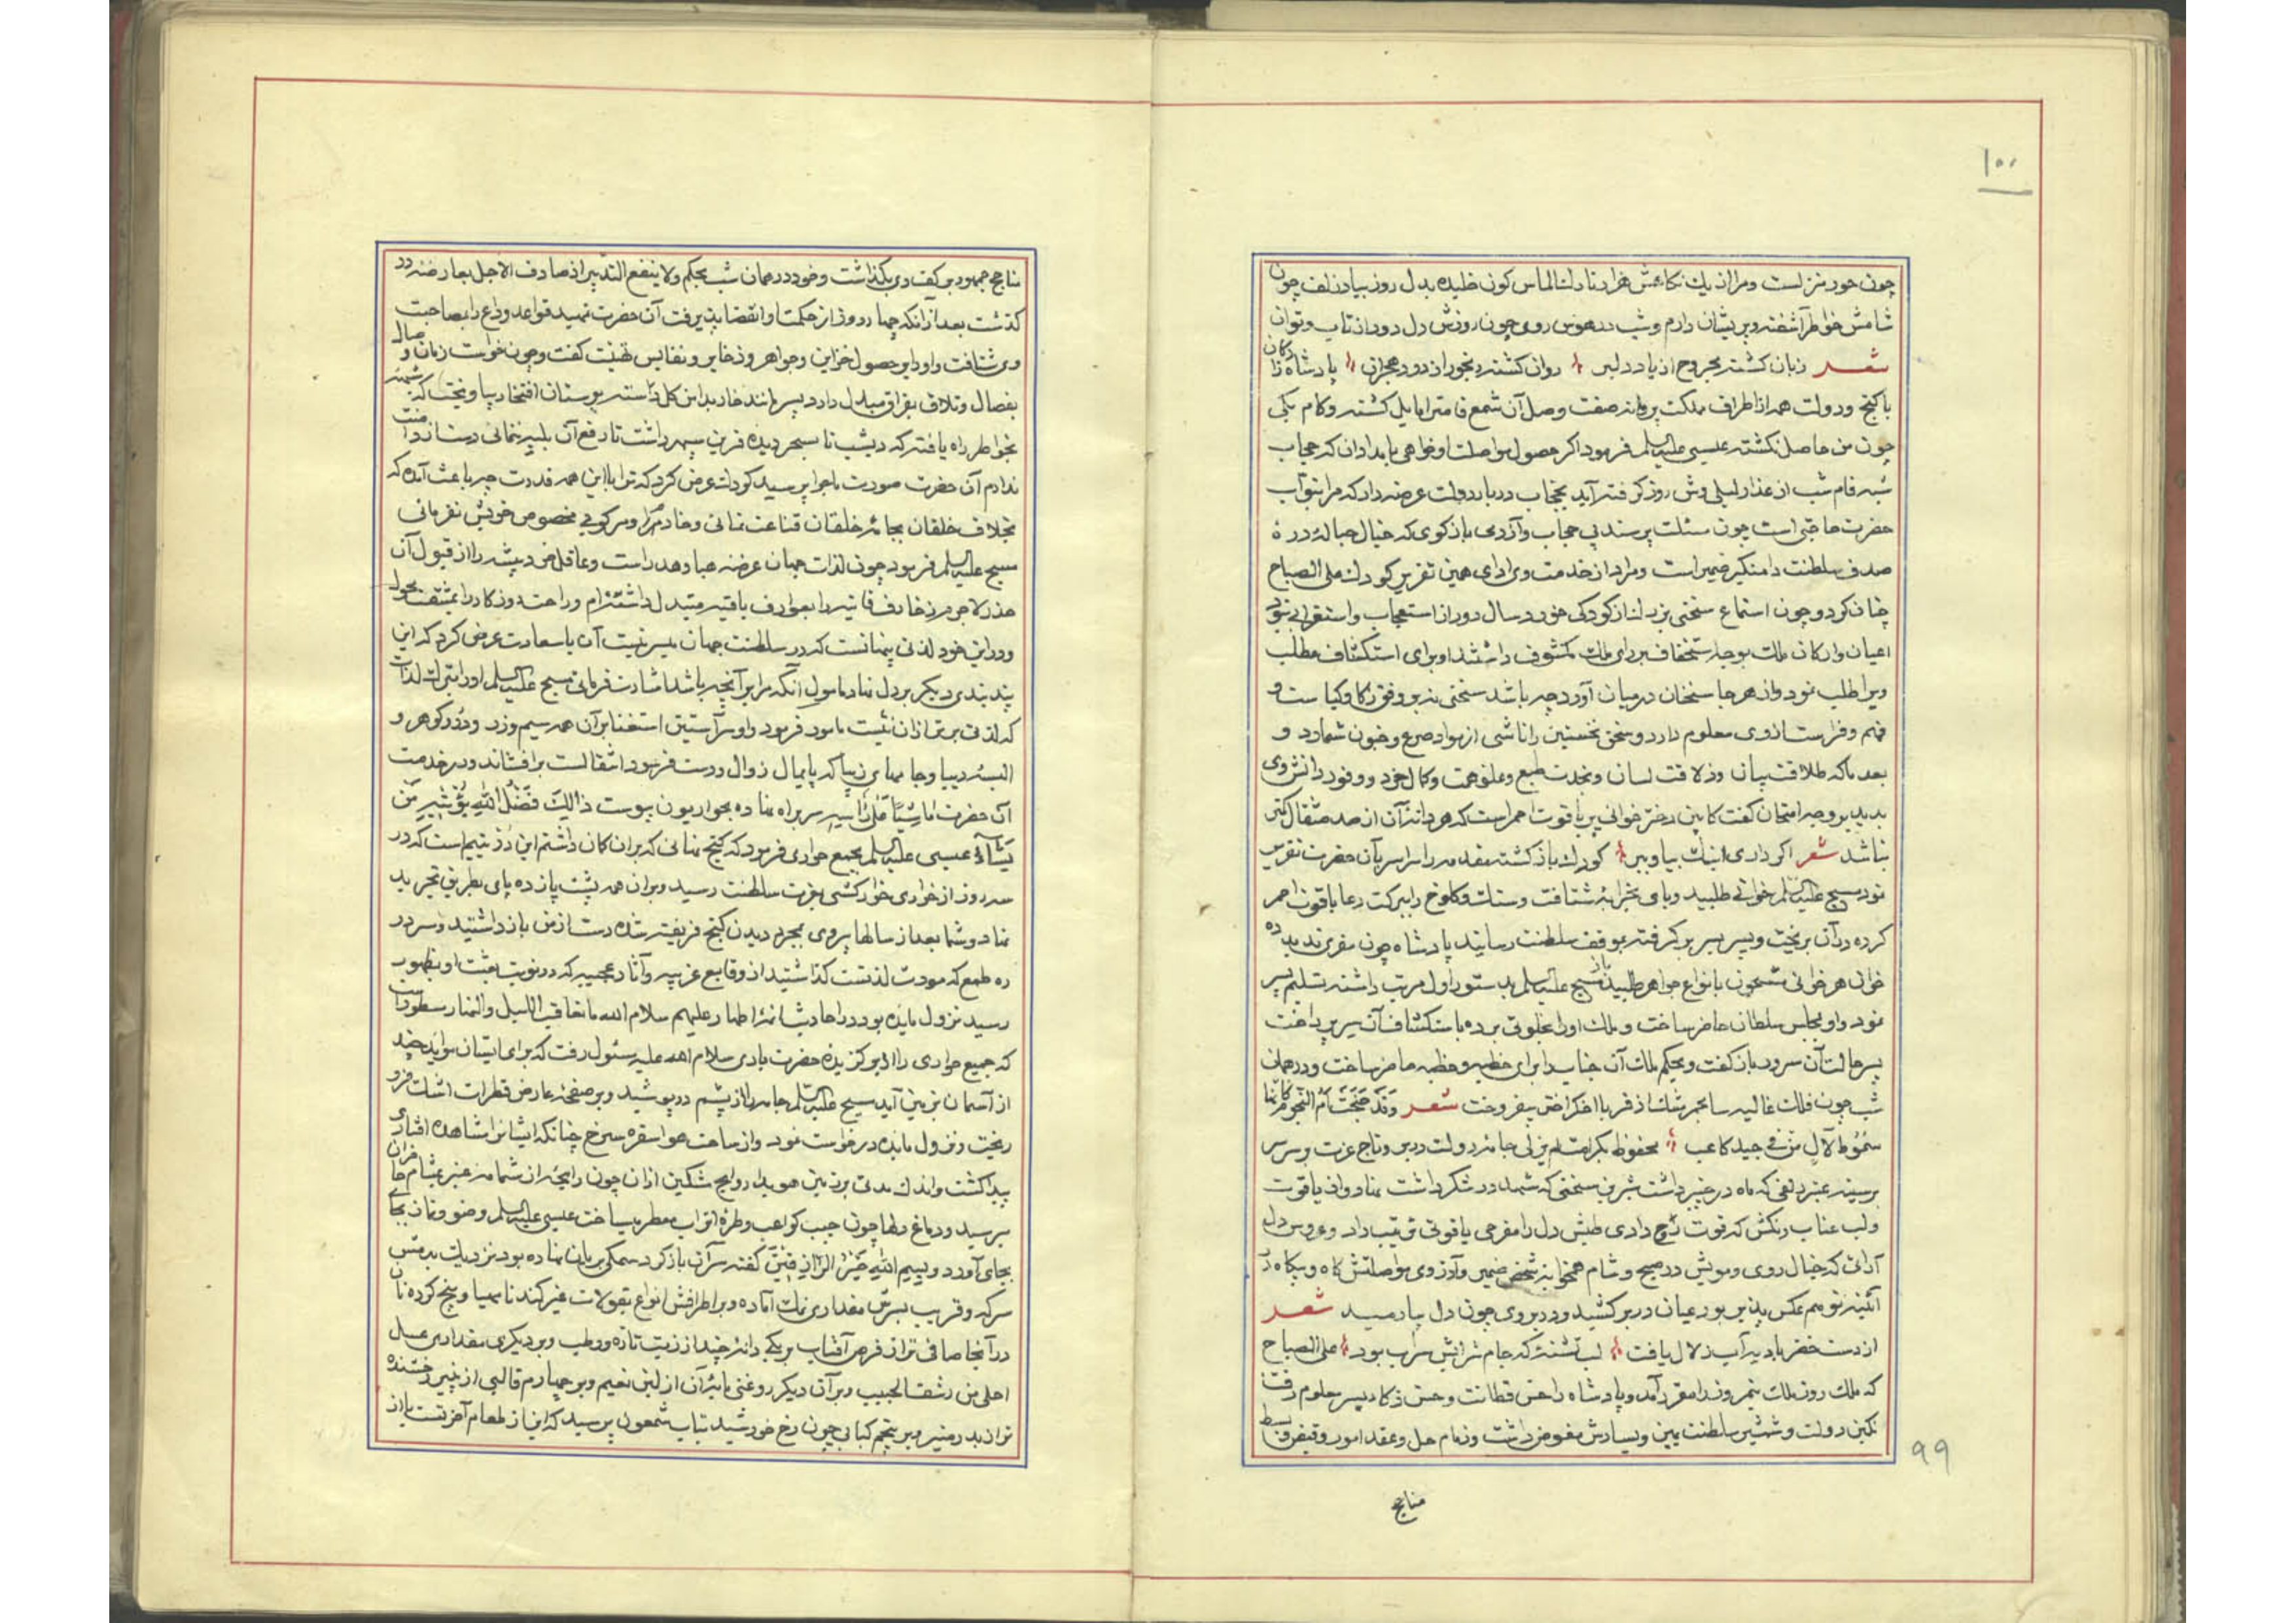 ۱۰۰
چون حور منزلست ومرا از یك نكاهش هزار ناوك الماس كون خلیده بدل روز بیاد زلف چون
شامش خواطر آشفته وپریشان دارم وشب در هوس روی چون روزش دل دور از تاب وتوان
شعر زبان كشته مجروح از یاد دلبر روان كشته رنجور از درد هجران پادشاه
با كنج ودولت همه از اطراف مملكت پروانه صفت وصل آن شمع قامت را مایل كشته وكام یكی
چون من حاصل نكشته عیسی علیه السلم فرمود اكر حصول مواصلت او خواهی بامدادان كه حجاب
شبه فام شب از عذار لیلی وش روز كرفته آید بحجاب دربار دولت عرضه دار كه مرا بنواب
حضرت حاجتی است چون مسئلت پرسند بی حجاب وآزرمی باز كوی كه خیال حباله دره
صدف سلطنت دامنكیر ضمیر است ومراد از خدمت وی ادای همین تقریر كودك علی الصباح
چنان كرد وچون استماع سخنی بزرك از كودكی خورد سال دور از استعجاب واستغراب نبود
اعیان واركان ملت بوجه استخفاف بر رای ملك مكشوف داشتند او برای استكشاف مطلب
ویرا طلب نمود واز هر جا سخنان درمیان آورد چه باشد سخنی نه بر وفق ذكا وكیاست و
فهم وفراست از وی معلوم دارد وسخن نخستین را ناشی از مواد صرع وجنون شمارد و
بعد ما كه طلاقت بیان وذلاقت لسان وحدت طبع وعلو همت وكمال خرد ووفور دانش وی
بدید بر وجه امتحان كفت كابین دختر خوانی پر یاقوت احمر است كه هر دانه آن از صد مثقال كمتر
نباشد شعر اكر داری اینك بیا وببر كودك باز كشته مقدمه را سراسر بآن حضرت تقریر
نمود مسیح علیه السلم خوانی طلبید وبا وی بخرابه شتافت وسنك وكلوخ را ببركت دعا یاقوت احمر
كرده در آن بریخت وپسر بسر بر كرفته بموقف سلطنت رسانید پادشاه چون مفری ندید ده
خوان هر خوانی مشحون بانواع جواهر طلبید باز مسیح علیه السلم بدستور اول مرتب داشته تسلیم پسر
نمود واو بمجلس سلطان حاضر ساخت وملك او را بخلوتی برده باستكشاف آن سر پرداخت
پسر حالت آن سرور باز كفت وبحكم ملك آن جناب را برای خطبه وخطبه حاضر ساخت ودر همان
شب چون فلك غالیه سا مجمر مشك از قر با اخكر اختر بیفروخت شعر وقد جنحت ام النجوم كانها
سموط لآل من فی جید كاعب محفوظ بكرامت لم یزلی جامه دولت در بر وتاج عزت بر سر
بر سینه عنبر زلفی كه ماه در چنبر داشت شیرین سخنی كه شهد در شكر داشت نهاد واز یاقوت
ولب عناب رنكش كه قوت روح دادی طپش دل را مفرحی یاقوتی ترتیب داد وعروس دل
آرائی كه خیال روی ومویش در صبح وشام همخوابه شخص ضمیر وآرزوی مواصلتش كاه وبیكاه در
آئینه توهم عكس پذیر بود عیان در بر كشید ودر بروی چون دل یار دمید شعر
از دست خضر بادیه آب زلال یافت لب تشنه كه جام شرابش سراب بود علی الصباح
كه ملك روز ملك نیمروز را مقر آمد وپادشاه را حسن فطانت وحسن ذكاء پسر معلوم رفت
نكین دولت وشمشیر سلطنت بیمین ویسارش مفوض داشت وزمام حل وعقد امور وقبض وبسط
۹۹
مناجح
مناجح جمهور بر كف وی بكذاشت وخود در همان شب بحكم ولا ینفع التدبیر اذ صادف الاجل بعارضه در
كذشت بعد از آنكه چهار روز از حكمت او انقضا پذیرفت آن حضرت تمهید قواعد وداع را بمصاحبت
وی شتافت واو را بر حصول خزاین وجواهر وذخایر ونفایس تهنیت كفت وچون خواست زمان وصال
بفصال وتلاق بفراق مبدل دارد پسر مانند خار بدامن كلدسته بوستان افتخار بیاویخت كه شبهه
بخواطر راه یافته كه دیشب تا بسحر دیده قرین سهر داشت تا رفع آن بلیه ننمائی دست از دامنت
ندارم آن حضرت صورت ماجرا پرسید كودك عرض كرد كه ترا با این همه قدرت چه باعث آمده كه
بخلاف خلقان بجامه خلقان قناعت نمائی وخادم را ومركوبی مخصوص خویش نفرمائی
مسیح علیه السلم فرمود چون لذات جهان عرضه هبا وهدر است وعاقل خرد پیشه را از قبول آن
حذر لاجرم زخارف فانیه را بعوارف باقیه متبدل داشته‌ام وراحت دو روزه را بمشقت
ودر این خود لذتی پنهانست كه در سلطنت جهان میسر نیست آن با سعادت عرض كرد كه این
پند بندی دیكر بر دل نهاد مامول آنكه مرا بر آنچه باشد اشارت فرمائی مسیح علیه السلم او را بترك لذات
كه لذتی برتر از آن نیست مامور فرمود واو سر آستین استغنا بر آن همه سیم وزر ودر وكوهر و
البسه دیبا وجامهای زیبا كه پایمال زوال ودست فرسود انتقالست برافشاند ودر خدمت
آن حضرت ماشیا علی راسه سر براه نهاده بحواریون پیوست ذالك فضل الله یؤتیه من
یشآء عیسی علیه السلم بجمیع حواری فرمود كه كنج نهانی كه بر آن كمان داشتم این در یتیم است كه در
سه روز از خواری خار كشی بعزت سلطنت رسید وبر آن همه پشت پا زده پای بطریق تجرید
نهاد وشما بعد از سالها پیروی بمجرد دیدن كنج فریفته شده دست از من باز داشتید وسر در
ره طمع كه مورث لذتست كذاشتید از وقایع غریبه وآثار عجیبه كه در نوبت بعثت او بظهور
رسید نزول مایده بود در احادیث ائمه اطهار علیهم سلام الله ما تعاقب اللیل والنهار مسطور است
كه جمیع حواری را از بر كزیده حضرت باری سلام الله علیه مسئول رفت كه برای ایشان مواید چند
از آسمان بزمین آید مسیح علیه السلم جامه از پشم درپوشید وبر صفحه عارض قطرات اشك فرو
ریخت ونزول مایده درخواست نمود واز ساحت هوا سفره سرخ چنانكه ایشانرا مشاهده افتاد
پیدا كشت واندك مدتی بر زمین هویدا روایح مشكین از آن چون رایحه از شمامه عنبر بمشام حاضران
برسید ودماغ دلها چون جیب كواعب وطره اتراب معطر میساخت عیسی علیه السلم وضو ونماز بجای
بجای آورد وبسم الله خیر الرازقین كفته سر آن باز كرد سمكی بریان نهاده بود نزدیك بدمش
سركه وقریب بسرش مقداری نمك آماده وبر اطرافش انواع بقولات غیر كندنا مهیا وپنج كرده نان
در آنجا صافی تر از قرص آفتاب بر یكی دانه چند از زیت تازه ورطب وبر دیكری مقداری عسل
احلی من رشف الحبیب وبر آن دیكر روغنی مایه آن از لبن نعیم وبر چهارم قالبی از پنیر رخشنده
تر از بدر منیر وبر پنجم كبابی چون رخ خورشید تباب شمعون پرسید كه این از طعام آخرتست یا از